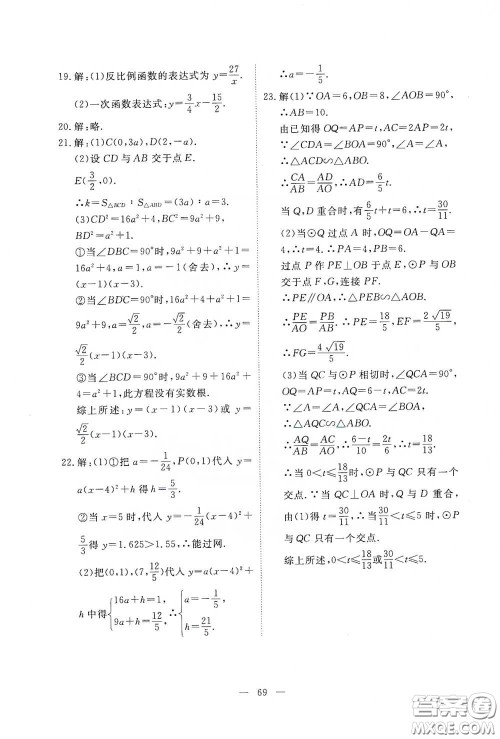 19. 解:(1)反比例函数的表达式为 y=27/x.
(2)一次函数表达式:y=3/4 x-15/2.
20. 解:略.
21. 解:(1)C(0,3a),D(2,-a).
(2)设 CD 与 AB 交于点 E.
E(3/2,0).
∴k=S△BCD:S△ABD=(3a):a=3.
(3)CD²=16a²+4,BC²=9a²+9,
BD²=a²+1.
①当∠DBC=90°时,9a²+9+a²+1=
16a²+4,a=1,a=-1(舍去),∴y=
(x-1)(x-3).
②当∠BDC=90°时,16a²+4+a²+1=
9a²+9,a=√2/2,a=-√2/2(舍去),∴y=
√2/2(x-1)(x-3).
③当∠BCD=90°时,9a²+9+16a²+4=
a²+1,此方程没有实数根.
综上所述:y=(x-1)(x-3)或y=
√2/2(x-1)(x-3).
22. 解:(1)①把 a=-1/24,P(0,1)代入 y=
a(x-4)²+h 得 h=5/3.
②当 x=5 时,代入 y=-1/24(x-4)²+
5/3得 y=1.625>1.55,∴能过网.
(2)把(0,1),(7,12/5)代入 y=a(x-4)²+
h 中得{16a+h=1, 9a+h=12/5,∴{a=-1/5, h=21/5.
∴a=-1/5.
23. 解(1)∵OA=6,OB=8,∠AOB=90°,
∴AB=10.
由已知得 OQ=AP=t,AC=2AP=2t.
∵∠CDA=∠BOA=90°,
∴△CDA∽△BOA.
∴CA/AB=AD/AO,∴AD=6/5 t.
当 Q,D 重合时,有6/5 t+t=6,∴t=30/11.
(2)∵当⊙Q 过点 A 时,OQ=OA-QA=
4.∴t=4.∴PA=4,PB=6.
过点 P 作 PE⊥OB 于点 E,⊙P 与 BC
交于点 F,G,连接 PF.
∴PE∥OA,∴△PEB∽△AOB.
∴PE/AO=PB/AB,∴PE=18/5,EF=2√19/5.
∴FG=4√19/5.
(3)当 QC 与⊙P 相切时,∠QCA=90°.
∵OQ=AP=t,AQ=6-t,AC=2t.
∵∠A=∠A,∠QCA=∠BOA,
∴△AQC∽△ABO.
∴AQ/AB=AC/AO,∴6-t/10=2t/6,∴t=18/13.
∴当 0<t≤18/13时,⊙P 与 QC 只有一个
交点.∵QC⊥OA 时,Q 与 D 重合,
由(1)得 t=30/11,∴当30/11<t≤5 时,⊙P
与 QC 只有一个交点.
综上所述,0<t≤18/13或30/11<t≤5.
— 69 —
答案圈
MXQE.COM